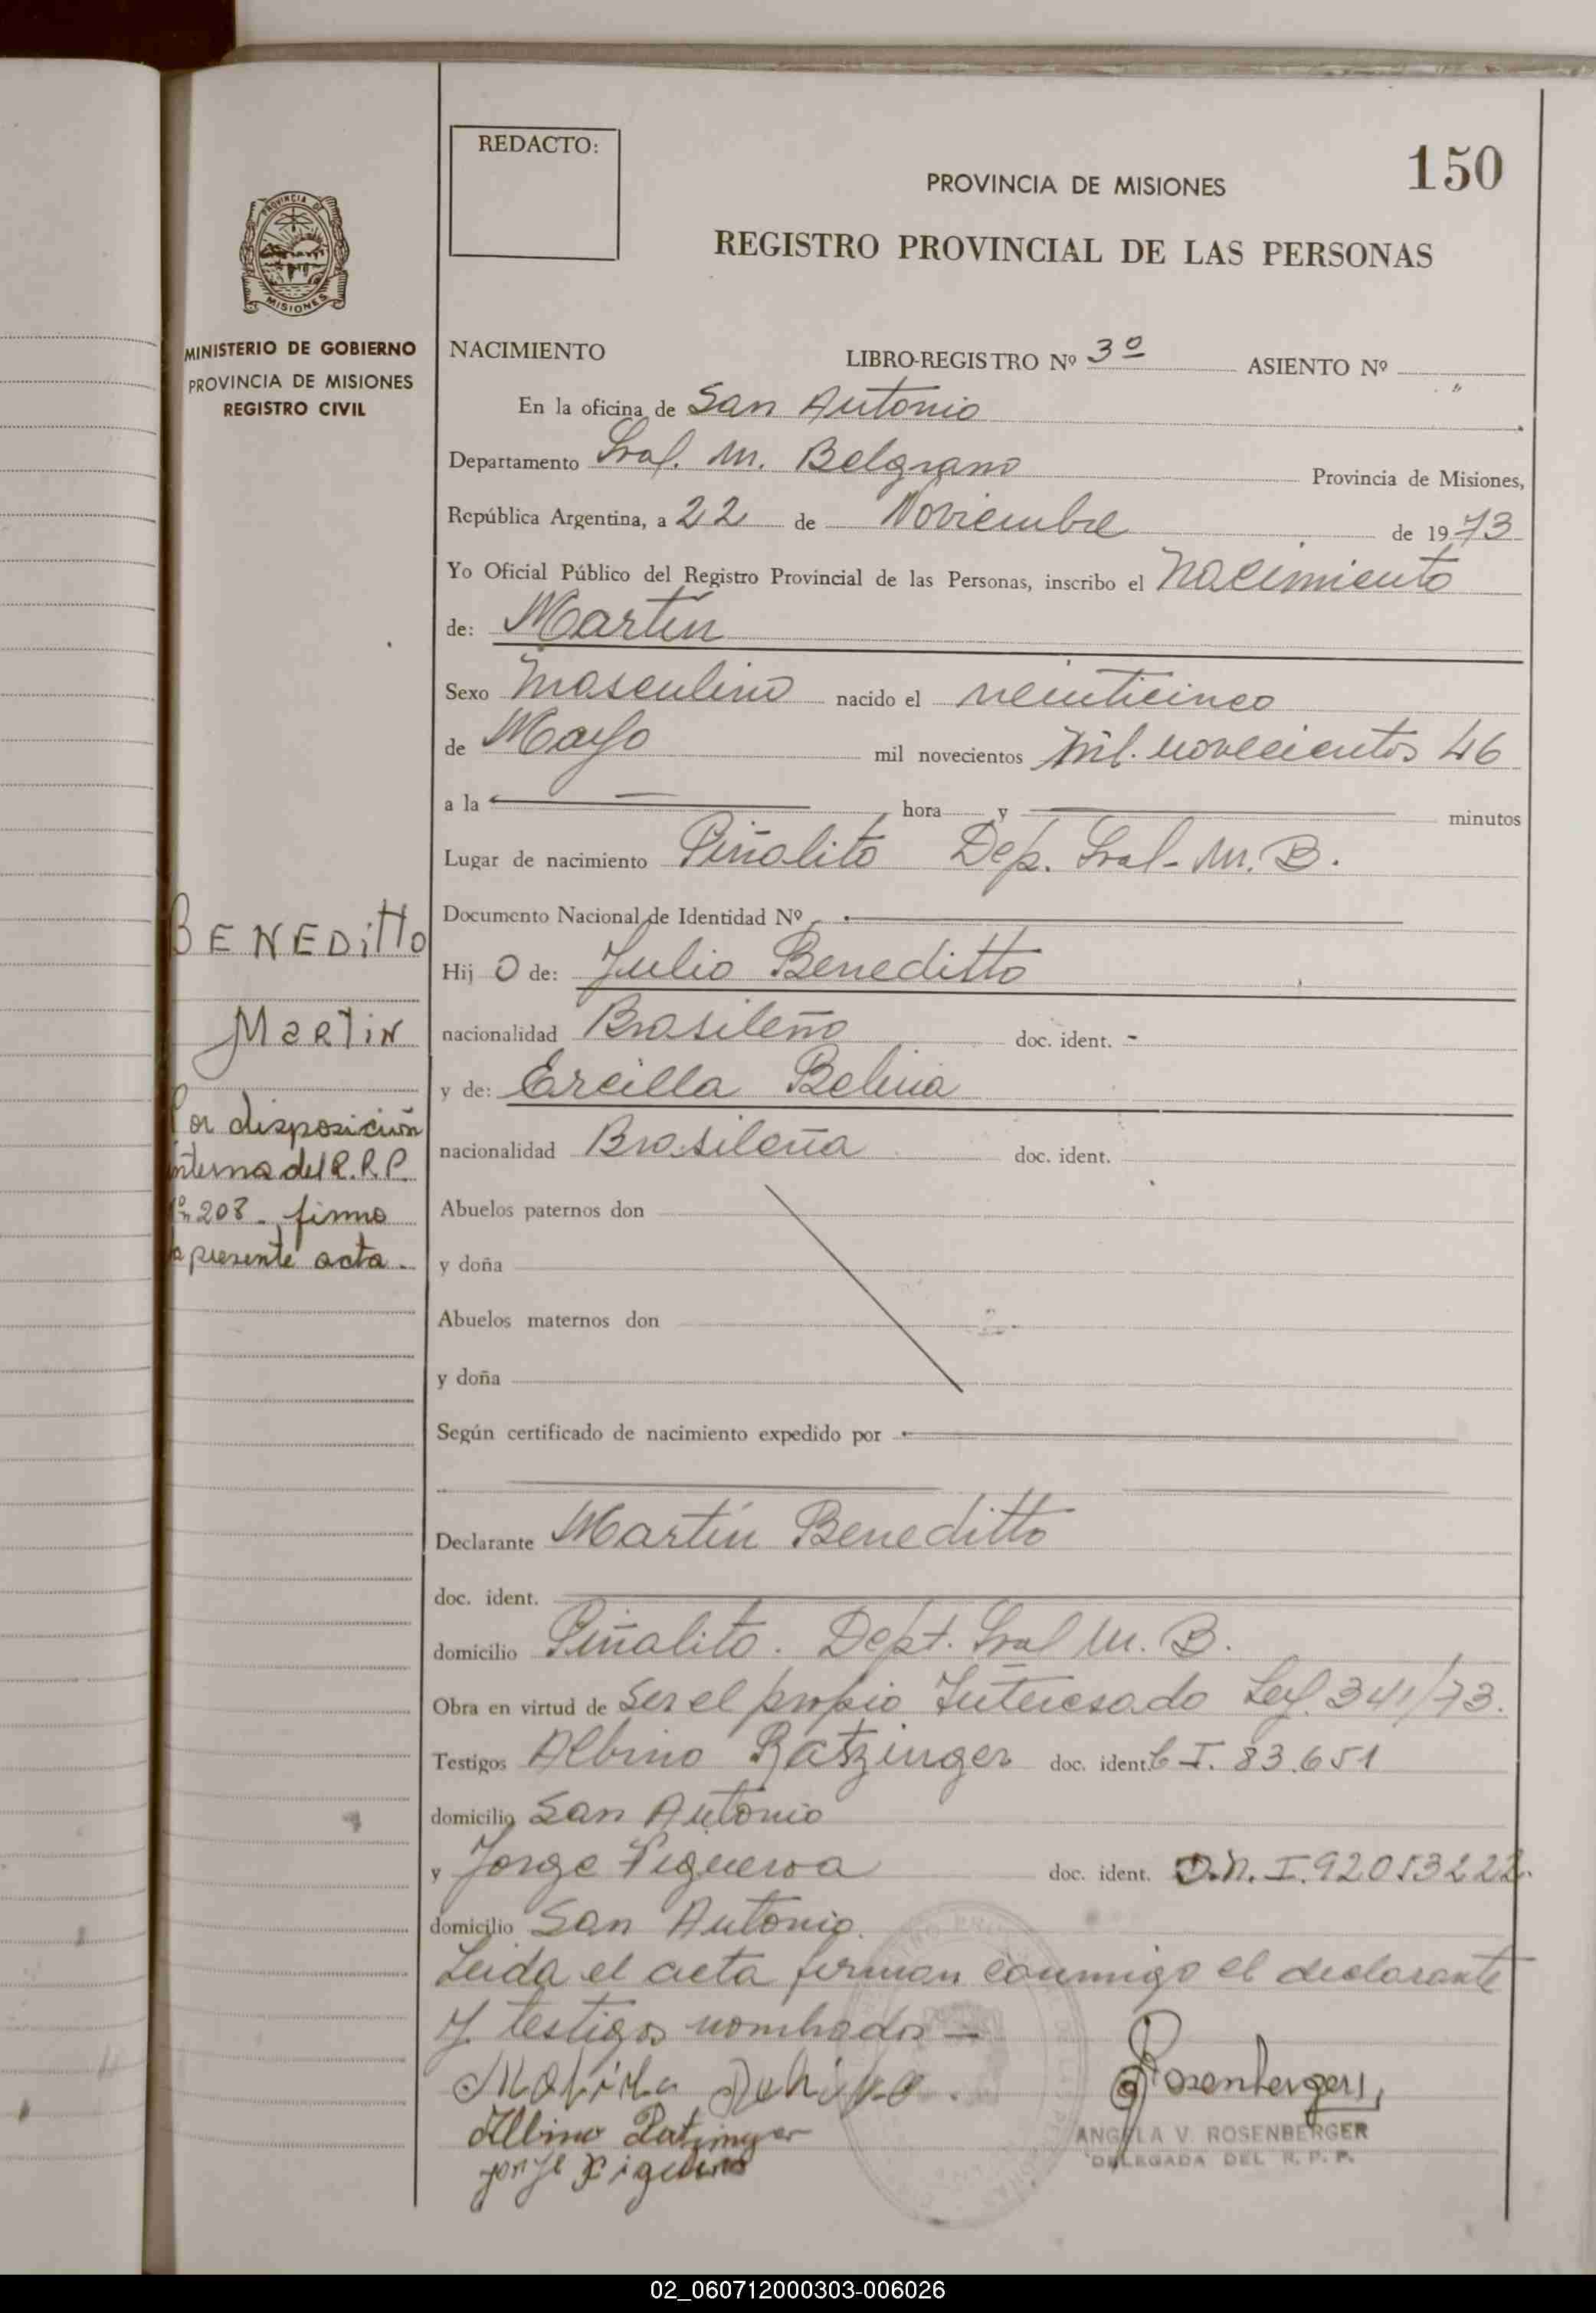 REDACTO:
150
PROVINCIA DE MISIONES
REGISTRO PROVINCIAL DE LAS PERSONAS
MISIONES
MINISTERIO DE GOBIERNO
PROVINCIA DE MISIONES
REGISTRO CIVIL
NACIMIENTO LIBRO-REGISTRO Nº 3º ASIENTO Nº "
En la oficina de San Antonio
Departamento Gral. M. Belgrano Provincia de Misiones,
República Argentina, a 22 de Noviembre de 1973
Yo Oficial Público del Registro Provincial de las Personas, inscribo el Nacimiento
de: Martín
Sexo Masculino nacido el veinticinco
de Mayo mil novecientos Mil novecientos 46
a la hora y minutos
Lugar de nacimiento Piñalito Dep. Gral. M. B.
Documento Nacional de Identidad Nº
Hijo de: Julio Beneditto
nacionalidad Brasileño doc. ident. -
y de: Ercilla Belina
nacionalidad Brasileña doc. ident.
Abuelos paternos don
y doña
Abuelos maternos don
y doña
Según certificado de nacimiento expedido por
Declarante Martín Beneditto
doc. ident.
domicilio Piñalito. Dept. Gral M. B.
Obra en virtud de Ser el propio Interesado Ley. 341/73.
Testigos Albino Ratzinger doc. ident. C I. 83.651
domicilio San Antonio
y Jorge Figueroa doc. ident. D.N.I. 92053222.
domicilio San Antonio.
Leida el acta firman conmigo el declarante
y testigos nombrados -
Albino Ratzinger
Jorge Figueroa
Rosenberger
ANGELA V. ROSENBERGER
DELEGADA DEL R. P. P.
BENEDITTO
MARTIN
Por disposición
interna del R.R.P.
Nº 208 - firmo
la presente acta.
02_060712000303-006026